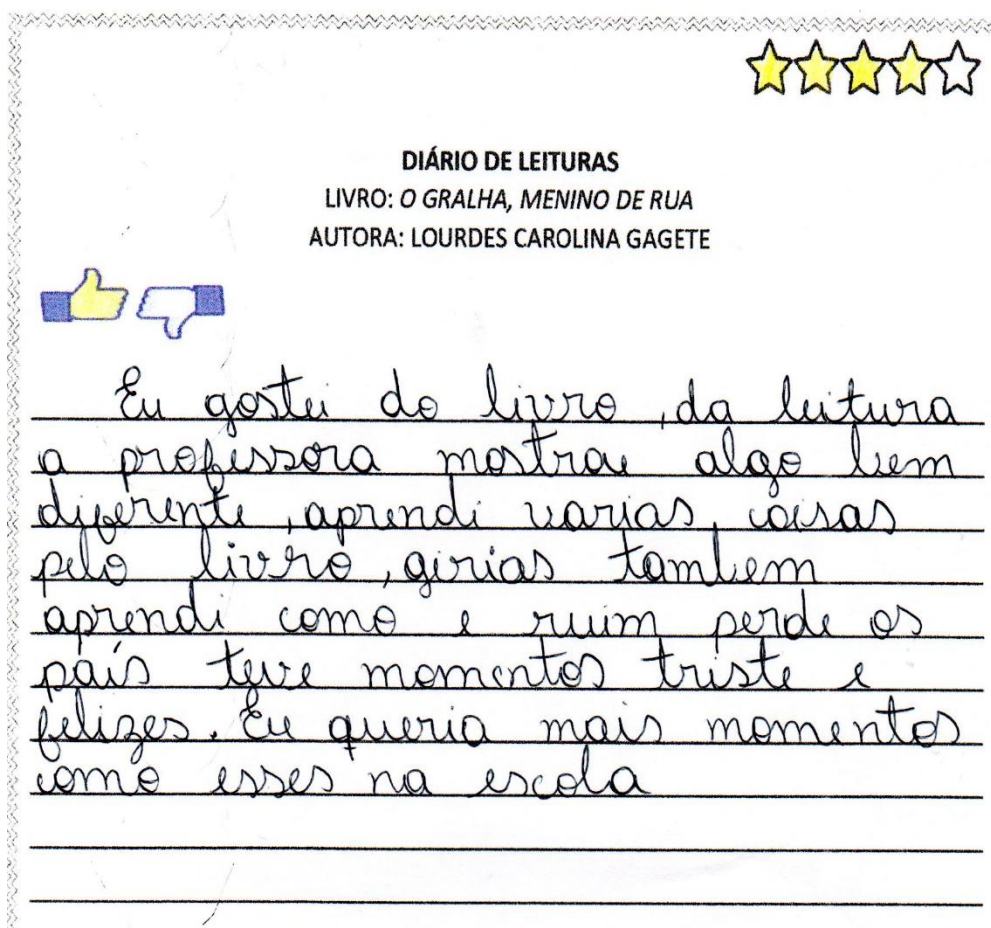 DIÁRIO DE LEITURAS
LIVRO: O GRALHA, MENINO DE RUA
AUTORA: LOURDES CAROLINA GAGETE
Eu gostei do livro, da leitura
a professora mostrou algo bem
diferente, aprendi varias, coisas
pelo livro, girias tambem
aprendi como e ruim perde os
país teve momentos triste e
felizes. Eu queria mais momentos
como esses na escola